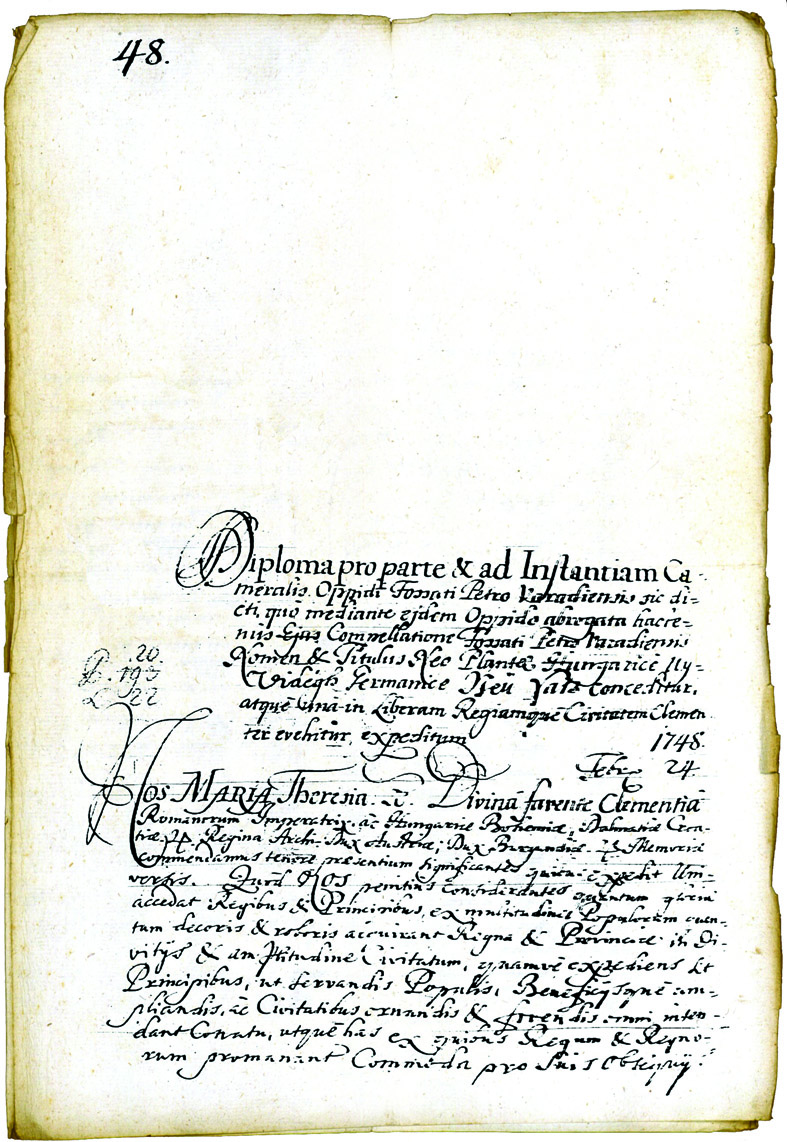 48.
Diploma pro parte & ad Instantiam Ca-
meralis Oppidi Fossati Petro Varadiensis sic di-
cti, quô mediante ejdem Oppido abrogata hacte-
nus Ejus Compellatione Fossati Petro Varadiensis
Nomen & Titulus Neo Plantæ Hungaricè Uy-
Videgh Germanice Neu Satz conceditur,
atque una in Liberam Regiamque Civitatem Clemen
ter evehitur, expeditum
1748.
Febr. 24
20
193
22
Nos MARIA Theresia Divinâ favente Clementiâ
Romanorum Imperatrix, ac Hungariæ Bohemiæ, Dalmatiæ Croa-
tiæ Regina Archi-Dux Austriæ, Dux Burgundiæ Memoriæ
commendamus tenore præsentium significantes quibus expedit Uni-
versis. Quod Nos penitius considerantes quantum gloriæ
accedat Regibus & Principibus, ex multitudine Populorum quan-
tum decoris & roboris accuirant Regna & Provinciæ in Di-
vitijs & amplitudine Civitatum, quamve expediens sit
Principibus, ut servandis Populis, Beneficijsque am-
pliandis, ac Civitatibus ornandis & fovendis omni inten-
dant Conatu, utque has ex quibus Regum & Regno-
rum promanant Commoda pro suis Obsequij